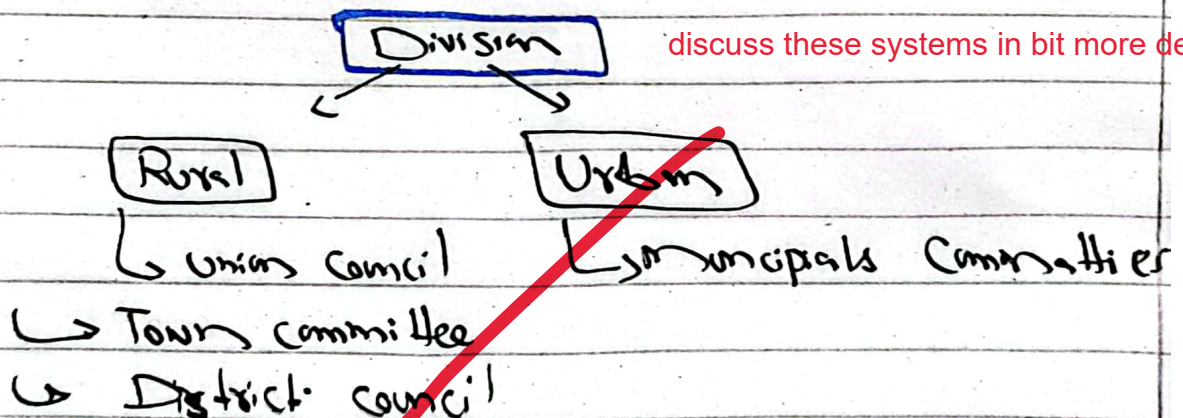 Division
discuss these systems in bit more de
Rural Urban
↳ Union Council ↳ Muncipals Committies
↳ Town committee
↳ District council